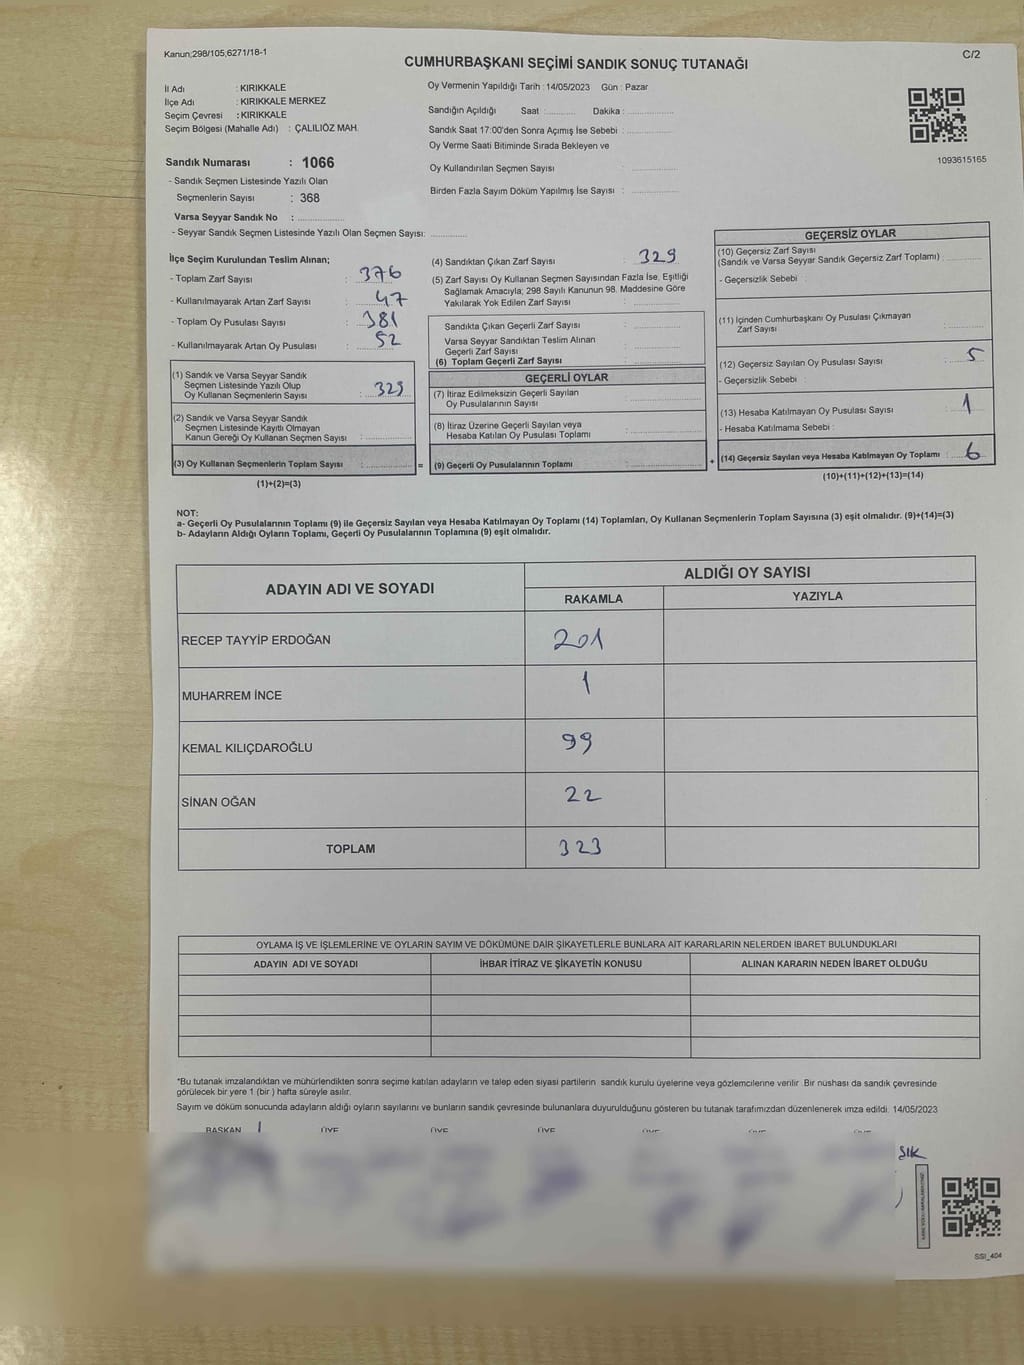 Kanun;298/105,6271/18-1
C/2
CUMHURBAŞKANI SEÇİMİ SANDIK SONUÇ TUTANAĞI
İl Adı : KIRIKKALE
İlçe Adı : KIRIKKALE MERKEZ
Seçim Çevresi : KIRIKKALE
Seçim Bölgesi (Mahalle Adı) : ÇALILIÖZ MAH.
Sandık Numarası : 1066
- Sandık Seçmen Listesinde Yazılı Olan
Seçmenlerin Sayısı : 368
Varsa Seyyar Sandık No :
- Seyyar Sandık Seçmen Listesinde Yazılı Olan Seçmen Sayısı:
Oy Vermenin Yapıldığı Tarih : 14/05/2023 Gün : Pazar
Sandığın Açıldığı Saat : Dakika :
Sandık Saat 17:00'den Sonra Açımış İse Sebebi :
Oy Verme Saati Bitiminde Sırada Bekleyen ve
Oy Kullandırılan Seçmen Sayısı :
Birden Fazla Sayım Döküm Yapılmış İse Sayısı :
1093615165
İlçe Seçim Kurulundan Teslim Alınan;
- Toplam Zarf Sayısı : 376
- Kullanılmayarak Artan Zarf Sayısı : 47
- Toplam Oy Pusulası Sayısı : 381
- Kullanılmayarak Artan Oy Pusulası : 52
(1) Sandık ve Varsa Seyyar Sandık
Seçmen Listesinde Yazılı Olup
Oy Kullanan Seçmenlerin Sayısı : 329
(2) Sandık ve Varsa Seyyar Sandık
Seçmen Listesinde Kayıtlı Olmayan
Kanun Gereği Oy Kullanan Seçmen Sayısı :
(3) Oy Kullanan Seçmenlerin Toplam Sayısı :
(1)+(2)=(3)
(4) Sandıktan Çıkan Zarf Sayısı : 329
(5) Zarf Sayısı Oy Kullanan Seçmen Sayısından Fazla İse, Eşitliği
Sağlamak Amacıyla; 298 Sayılı Kanunun 98. Maddesine Göre
Yakılarak Yok Edilen Zarf Sayısı :
Sandıkta Çıkan Geçerli Zarf Sayısı :
Varsa Seyyar Sandıktan Teslim Alınan
Geçerli Zarf Sayısı :
(6) Toplam Geçerli Zarf Sayısı :
GEÇERLİ OYLAR
(7) İtiraz Edilmeksizin Geçerli Sayılan
Oy Pusulalarının Sayısı :
(8) İtiraz Üzerine Geçerli Sayılan veya
Hesaba Katılan Oy Pusulası Toplamı :
= (9) Geçerli Oy Pusulalarının Toplamı : +
GEÇERSİZ OYLAR
(10) Geçersiz Zarf Sayısı
(Sandık ve Varsa Seyyar Sandık Geçersiz Zarf Toplamı)
- Geçersizlik Sebebi :
(11) İçinden Cumhurbaşkanı Oy Pusulası Çıkmayan
Zarf Sayısı :
(12) Geçersiz Sayılan Oy Pusulası Sayısı : 5
- Geçersizlik Sebebi :
(13) Hesaba Katılmayan Oy Pusulası Sayısı : 1
- Hesaba Katılmama Sebebi :
(14) Geçersiz Sayılan veya Hesaba Katılmayan Oy Toplamı : 6
(10)+(11)+(12)+(13)=(14)
NOT:
a- Geçerli Oy Pusulalarının Toplamı (9) ile Geçersiz Sayılan veya Hesaba Katılmayan Oy Toplamı (14) Toplamları, Oy Kullanan Seçmenlerin Toplam Sayısına (3) eşit olmalıdır. (9)+(14)=(3)
b- Adayların Aldığı Oyların Toplamı, Geçerli Oy Pusulalarının Toplamına (9) eşit olmalıdır.
ADAYIN ADI VE SOYADI
ALDIĞI OY SAYISI
RAKAMLA YAZIYLA
RECEP TAYYİP ERDOĞAN 201
MUHARREM İNCE 1
KEMAL KILIÇDAROĞLU 99
SİNAN OĞAN 22
TOPLAM 323
OYLAMA İŞ VE İŞLEMLERİNE VE OYLARIN SAYIM VE DÖKÜMÜNE DAİR ŞİKAYETLERLE BUNLARA AİT KARARLARIN NELERDEN İBARET BULUNDUKLARI
ADAYIN ADI VE SOYADI İHBAR İTİRAZ VE ŞİKAYETİN KONUSU ALINAN KARARIN NEDEN İBARET OLDUĞU
*Bu tutanak imzalandıktan ve mühürlendikten sonra seçime katılan adayların ve talep eden siyasi partilerin sandık kurulu üyelerine veya gözlemcilerine verilir .Bir nüshası da sandık çevresinde
görülecek bir yere 1 (bir ) hafta süreyle asılır.
Sayım ve döküm sonucunda adayların aldığı oyların sayılarını ve bunların sandık çevresinde bulunanlara duyurulduğunu gösteren bu tutanak tarafımızdan düzenlenerek imza edildi. 14/05/2023
BAŞKAN ÜYE ÜYE ÜYE ÜYE ÜYE ÜYE
SSI_404